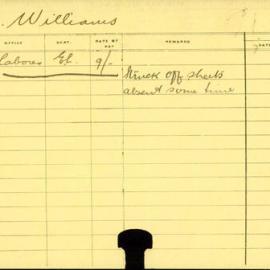 . Williams
OFFICE DEPT. RATE OF PAY REMARKS DATE
Labourer El. 9/- Struck off sheets
absent some time